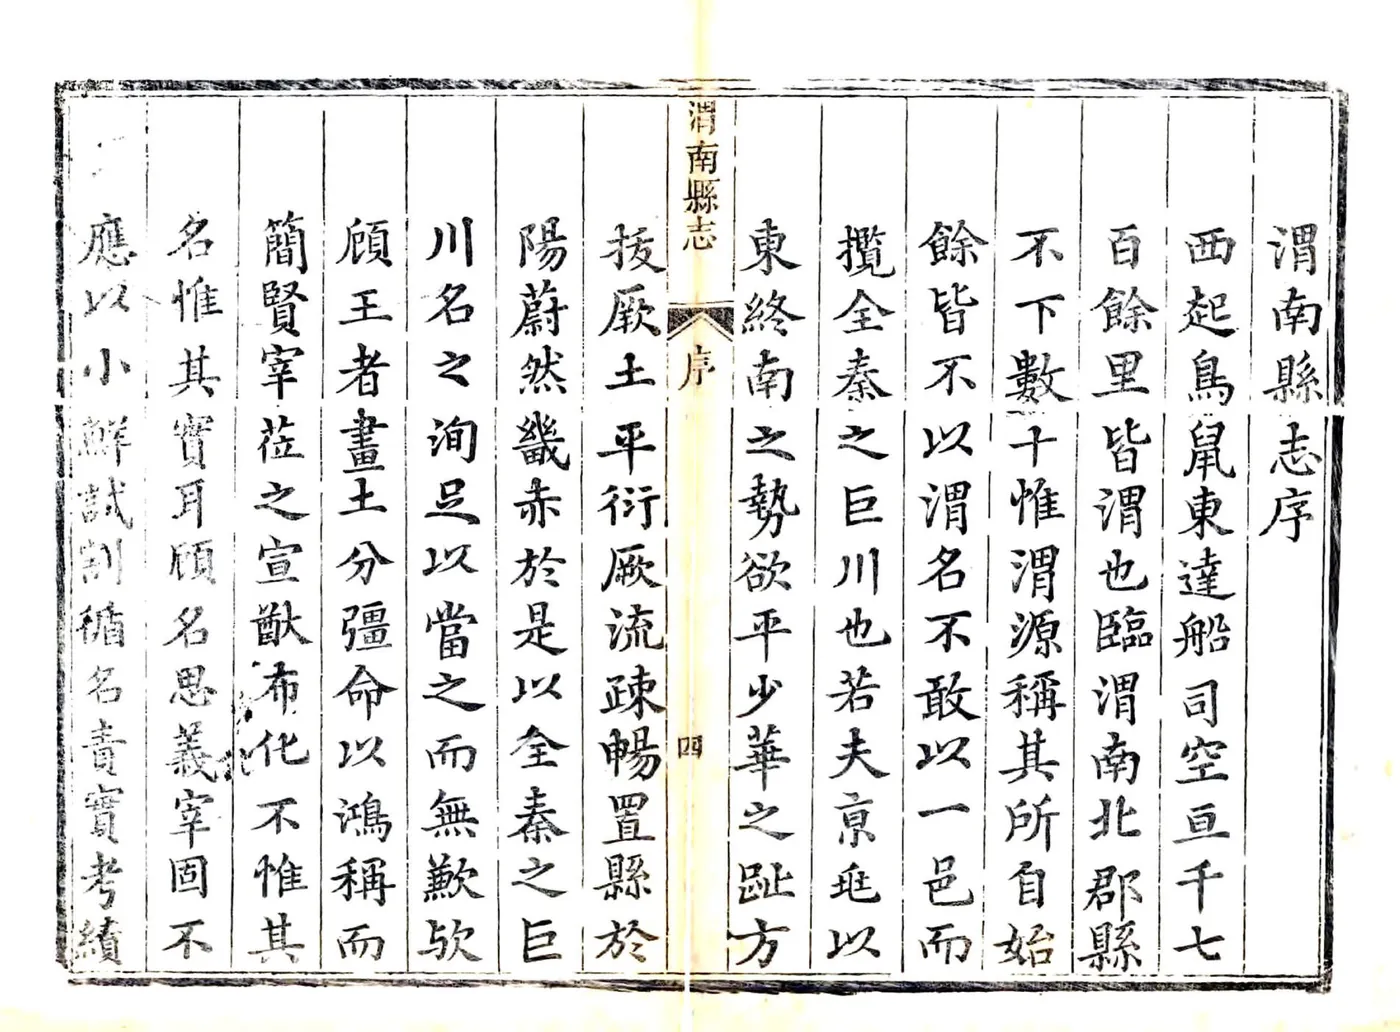 渭南縣志序
西起鳥鼠東達船司空亘千七
百餘里皆渭也臨渭南北郡縣
不下數十惟渭源稱其所自始
餘皆不以渭名不敢以一邑而
攬全秦之巨川也若夫亰𡍼以
東終南之勢欲平少華之趾方
渭南縣志
序
四
拔厥土平衍厥流疎暢置縣於
陽蔚然畿赤於是以全秦之巨
川名之洵足以當之而無歉欤
顧王者畫土分疆命以鴻稱而
簡賢宰莅之宣猷布化不惟其
名惟其實耳顧名思義宰固不
應以小鮮試割循名責實考績